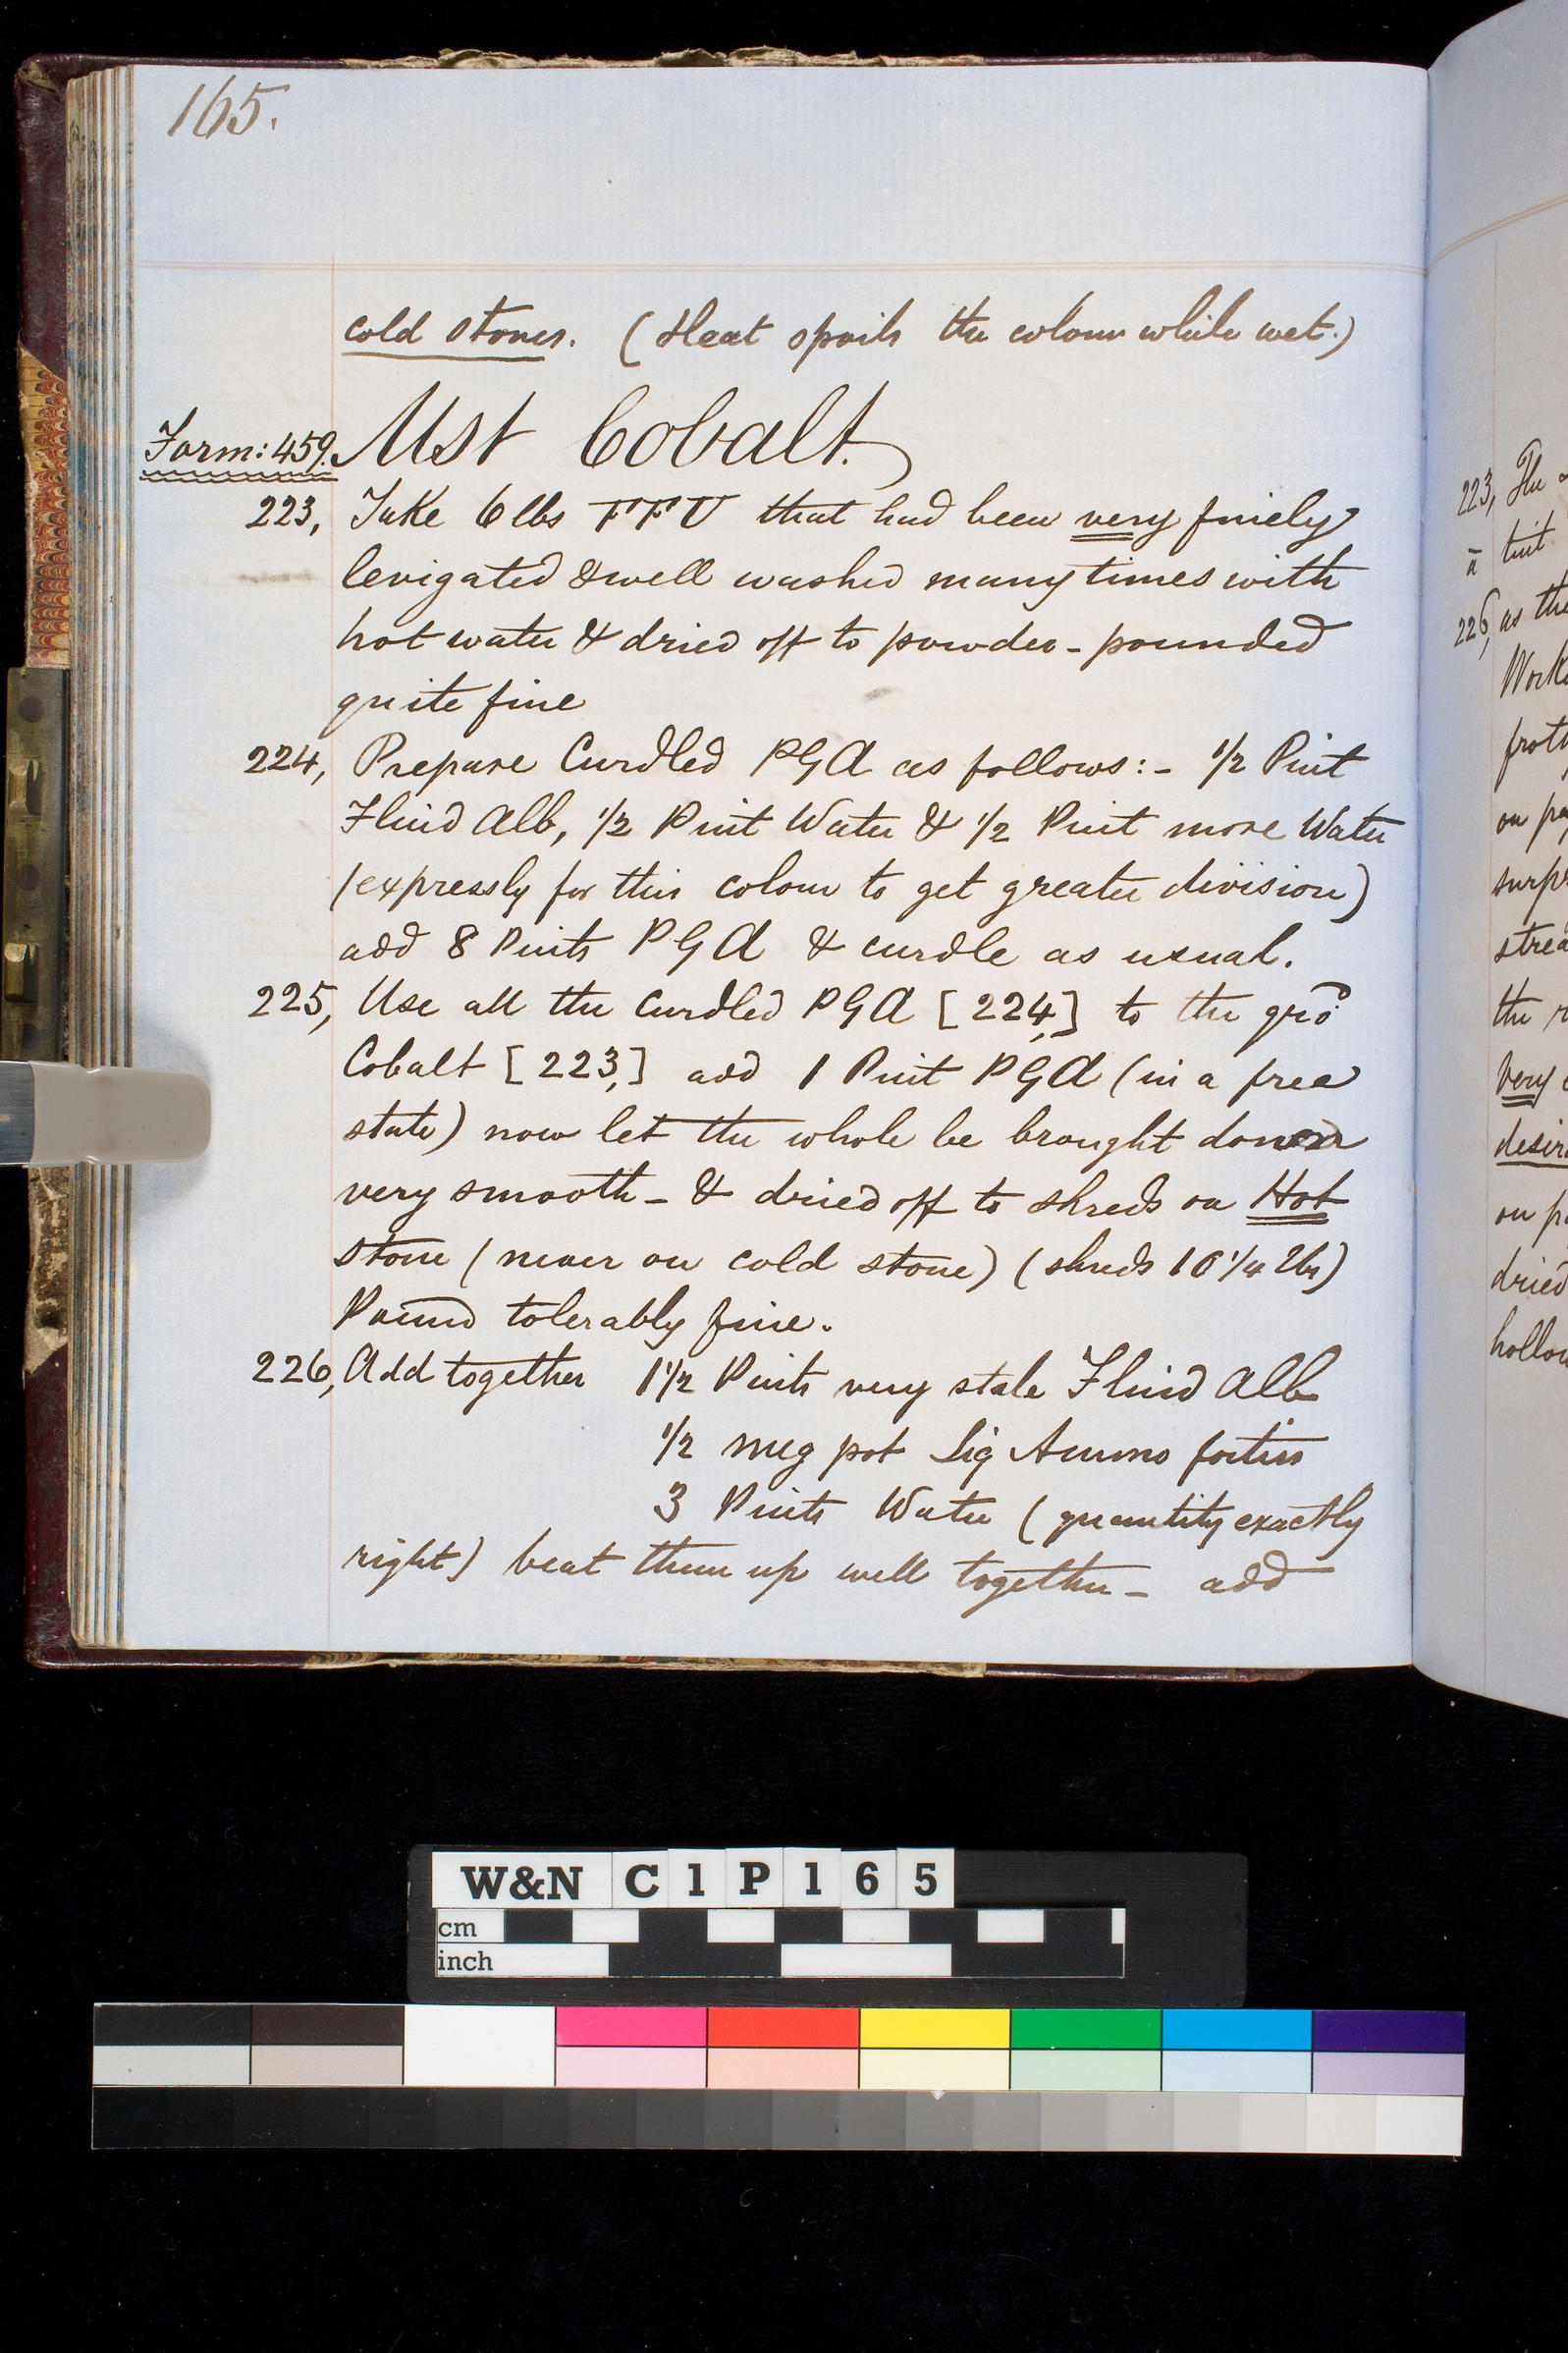 165.
cold stones. (Heat spoils the colour while wet.)
Form: 459. Mst Cobalt.
223, Take 6 lbs FFU that had been very finely
levigated & well washed many times with
hot water & dried off to powder - pounded
quite fine
224, Prepare Curdled PGA as follows:- 1/2 Pint
Fluid Alb, 1/2 Pint Water & 1/2 Pint more Water
(expressly for this colour to get greater division)
add 8 Pints PGA & curdle as usual.
225, Use all the Curdled PGA [224,] to the gro
Cobalt [223,] add 1 Pint PGA (in a free
state) now let the whole be brought down
very smooth - & dried off to shreds on Hot
stone (never on cold stone) (shreds 10 1/4 lbs)
Pound tolerably fine.
226, Add together 1 1/2 Pints very stale Fluid Alb
1/2 meg pot Liq Ammo fortiss
3 Pints Water (quantity exactly
right) beat them up well together - add
223, The
a tint
226, as the
on
the
very
on
dried
W&N C1P165
cm
inch